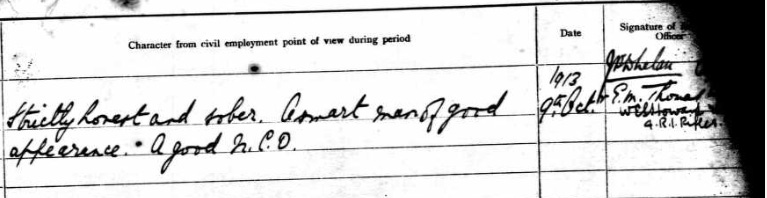 Character from civil employment point of view during period
Date
Signature of
Officer
Strictly honest and sober. A smart man of good
appearence. A good N.C.O.
1913
9th Oct.
E.M. Thomas